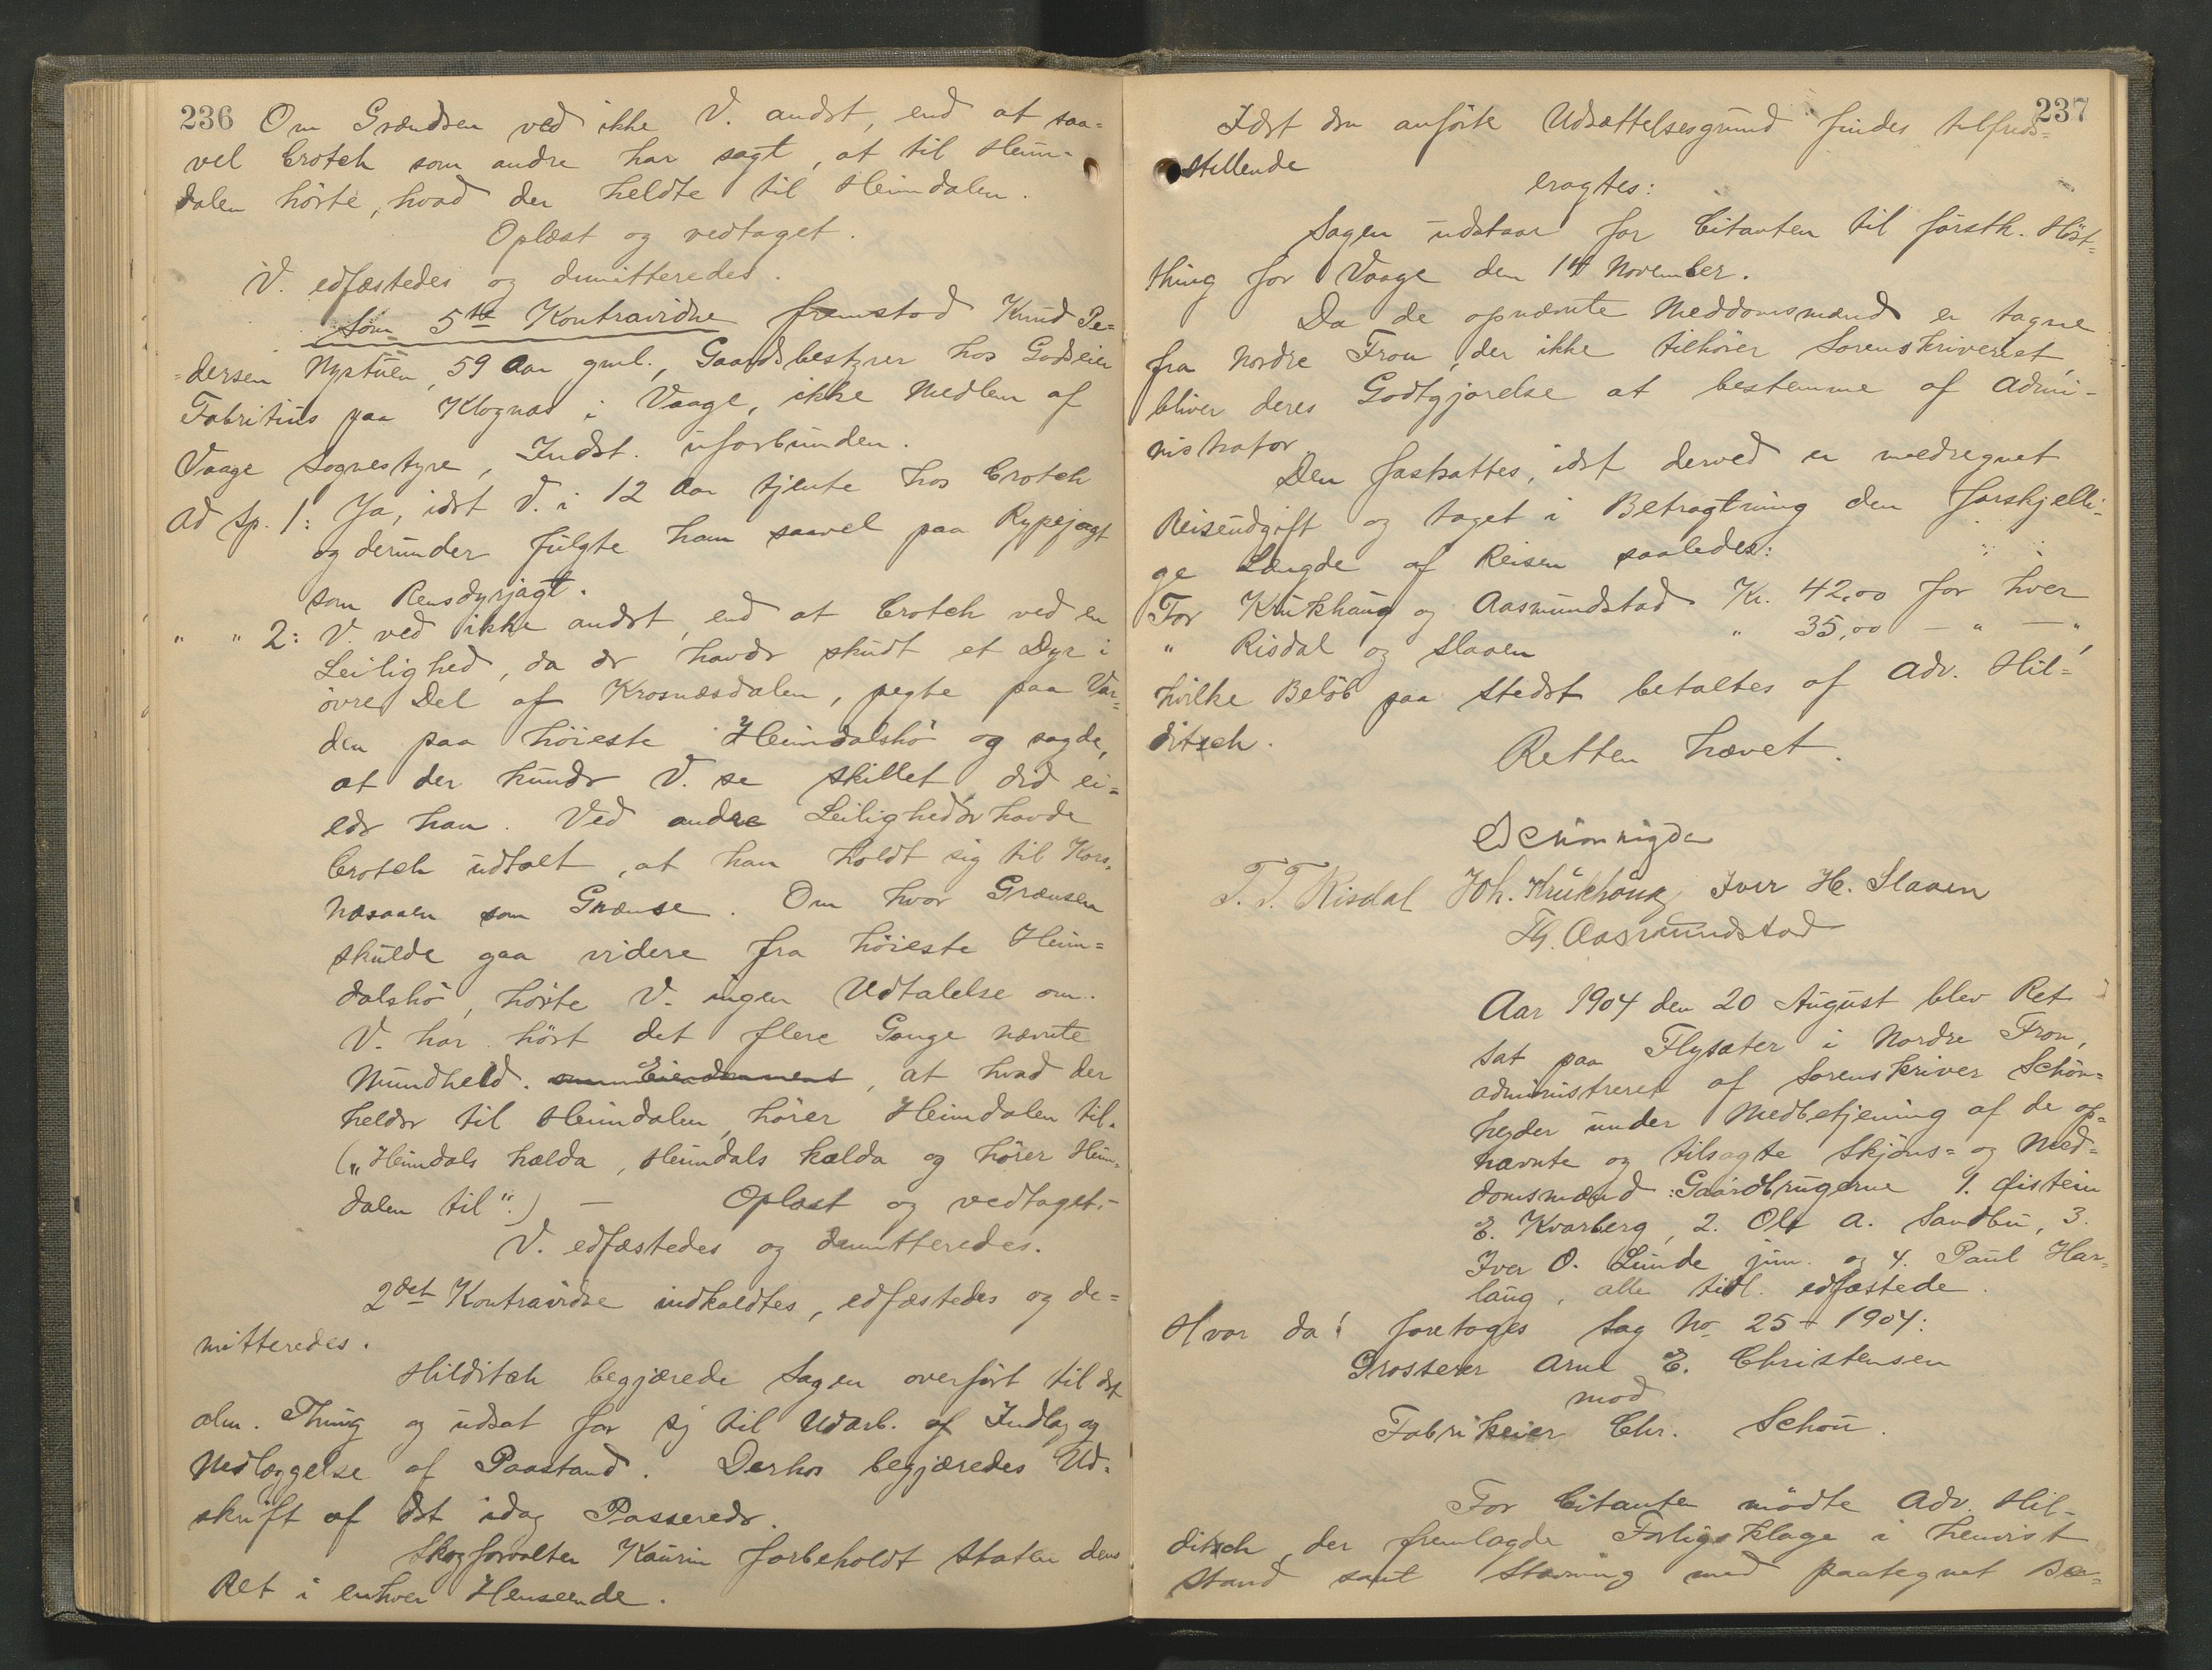 236 Om Grændsen ved ikke V. andet, end at saa=
vel Crotch som andre har sagt, at til Heim-
dalen hörte, hvad der heldte til Heimdalen.
Oplæst og vedtaget.
V. edfæstedes og dimitteredes.
Som 5te Kontravidne fremstod Knud Pe=
=dersen Nystuen, 59 Aar gml., Gaardsbestyrer hos Godseier
Fabritius paa Klognæs i Vaage, ikke Medlem af
Vaage Sognestyre, Indst. uforbunden.
Ad Sp. 1: Ja, idet V. i 12 Aar tjente hos Crotch
og derunder fulgte ham saavel paa Rypejagt
som Rensdyrjagt.
" " 2: V. ved ikke andet, end at Crotch ved en
Leilighed, da de havde skudt et Dyr i
övre Del af Krosnæsdalen, pegte paa Var=
den paa höieste Heimdalshö og sagde,
at der kunde V. se skillet, did ei=
ede han. Ved andre Leiligheder havde
Crotch udtalt, at han holdt sig til Kors=
næsaaen som Grænse. Om hvor Grænsen
skulde gaa videre fra höieste Heim=
dalshö, hörte V. ingen Udtalelse om.
V. har hört det flere Gange nævnte
Mundheld. om Eiendommens, at hvad der
helder til Heimdalen, hører Heimdalen til.
(„Heimdals hælda, Heimdals kælda og hører Heim=
dalen til".) — Oplæst og vedtaget.-
V. edfæstedes og dimitteredes.
2det Kontravidne indkaldtes, edfæstedes og de=
mitteredes.
Hilditch begjærede Sagen overført til det
alm. Thing og udsat for sig til Udarb. af Indlæg og
Nedlæggelse af Paastand. Derhos begjæredes Ud=
skrift af det idag Passerede.
Skogforvalter Kaurin forbeholdt Staten dens
Ret i enhver Henseende.
237
Idet den anförte Udsættelsesgrund findes tilfreds=
stillende
eragtes:
Sagen udstaar for Citanten til förstk. Höst=
thing for Vaage den 14 November.
Da de opnævnte Meddomsmænd er tagne
fra Nordre Fron, der ikke tilhører Sorenskriveriet,
bliver deres Godtgjørelse at bestemme af Admi-
nistrator.
Den fastsattes, idet derved er medregnet
Reiseudgift og taget i Betragtning den forskjelli=
ge Længde af Reisen saaledes:
For Krukhaug og Aasmundstad Kr. 42,00 for hver
" Risdal og Slaaen " 35,00 — " — ",
hvilke Beløb paa Stedet betaltes af Adv. Hil=
ditsch.
Retten hævet.
ESchönheyder
T. T. Risdal Joh. Krukhaug, Iver H. Slaaen
Th. Aasmundstad
Aar 1904 den 20 August blev Ret
sat paa Flysæter i Nordre Fron,
administreret af Sorenskriver Schön=
heyder under Medbetjening af de op=
nævnte og tilsagte Skjöns= og Med=
domsmænd: Gaardbrugerne 1. Øistein
E. Kvarberg, 2. Ole A. Sandbu, 3.
Iver O. Lunde jun. og 4. Paul Har=
laug, alle tidl. edfæstede.
Hvor da: foretoges Sag No 25 - 1904:
Grosserer Arne E. Christensen
mod
Fabrikeier Chr. Schou.
For Citanten mödte Adv. Hil-
ditsch, der fremlagde Forligsklage i henvist
Stand samt Stævning med paategnet Be=